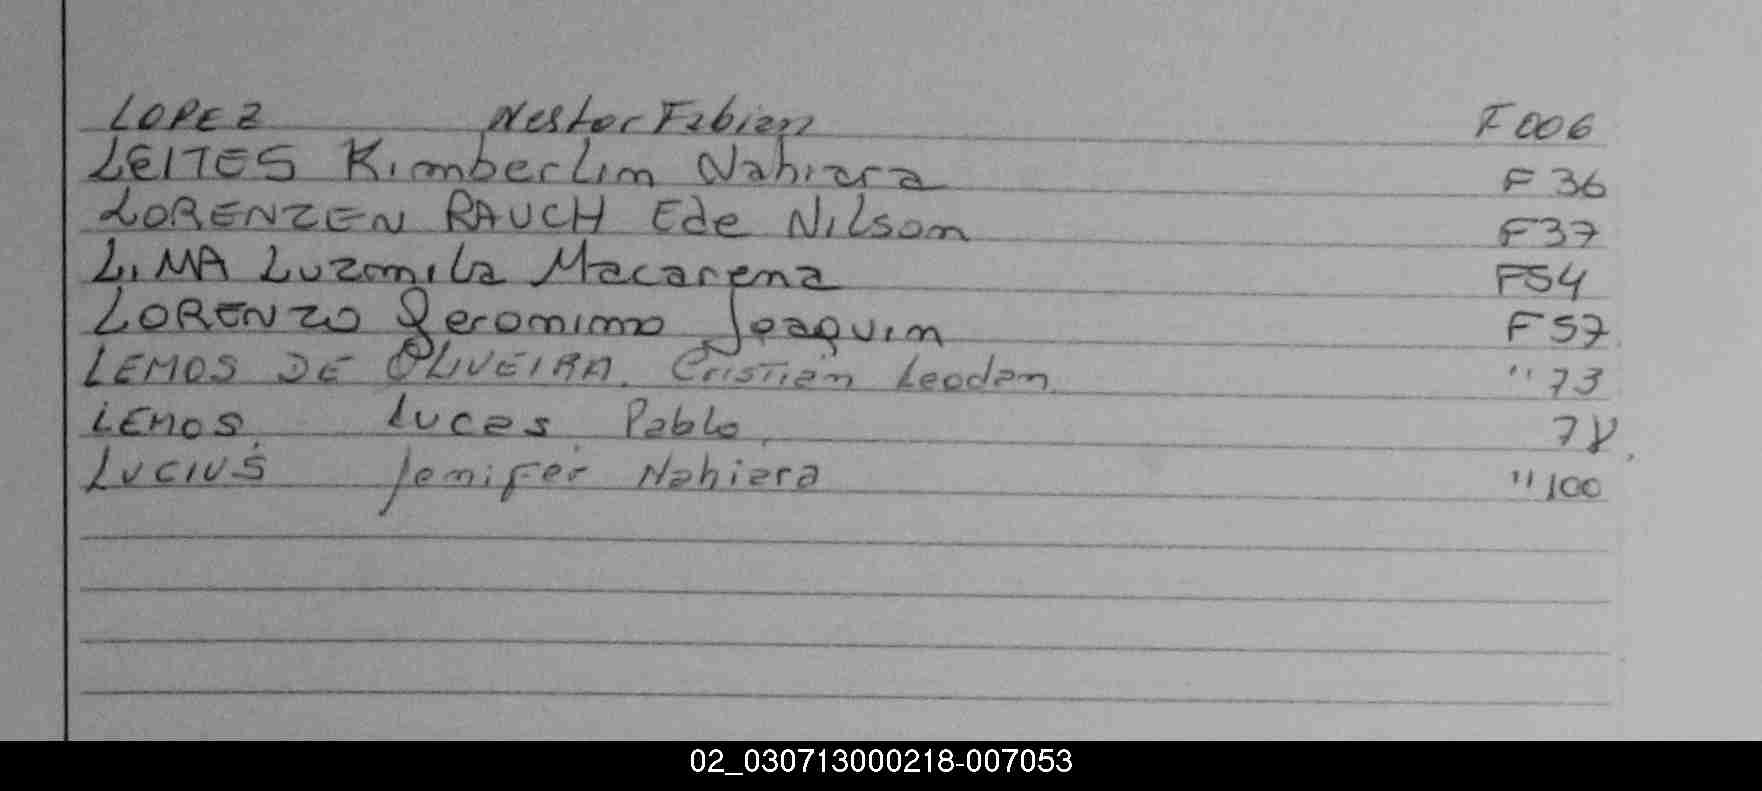 LOPEZ Nestor Fabian F 006
LEITES Kimberlim Nahiara F 36
LORENZEN RAUCH Ede Nilson F37
LIMA Luzmila Macarena F54
LORENZO Geronimo Joaquin F 57
LEMOS DE OLIVEIRA. Cristian Leodan " 73
LEMOS. Lucas Pablo. 78.
LUCIUS Jenifer Nahiara " 100
02_030713000218-007053